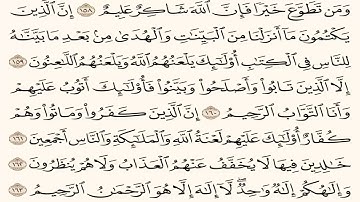 وَمَن تَطَوَّعَ خَيْرًا فَإِنَّ ٱللَّهَ شَاكِرٌ عَلِيمٌ ١٥٨ إِنَّ ٱلَّذِينَ
يَكْتُمُونَ مَآ أَنزَلْنَا مِنَ ٱلْبَيِّنَـٰتِ وَٱلْهُدَىٰ مِنۢ بَعْدِ مَا بَيَّنَّـٰهُ
لِلنَّاسِ فِى ٱلْكِتَـٰبِ أُو۟لَـٰٓئِكَ يَلْعَنُهُمُ ٱللَّهُ وَيَلْعَنُهُمُ ٱللَّـٰعِنُونَ ١٥٩
إِلَّا ٱلَّذِينَ تَابُوا۟ وَأَصْلَحُوا۟ وَبَيَّنُوا۟ فَأُو۟لَـٰٓئِكَ أَتُوبُ عَلَيْهِمْ
وَأَنَا ٱلتَّوَّابُ ٱلرَّحِيمُ ١٦٠ إِنَّ ٱلَّذِينَ كَفَرُوا۟ وَمَاتُوا۟ وَهُمْ
كُفَّارٌ أُو۟لَـٰٓئِكَ عَلَيْهِمْ لَعْنَةُ ٱللَّهِ وَٱلْمَلَـٰٓئِكَةِ وَٱلنَّاسِ أَجْمَعِينَ ١٦١
خَـٰلِدِينَ فِيهَا لَا يُخَفَّفُ عَنْهُمُ ٱلْعَذَابُ وَلَا هُمْ يُنظَرُونَ ١٦٢
وَإِلَـٰهُكُمْ إِلَـٰهٌ وَٰحِدٌ لَّآ إِلَـٰهَ إِلَّا هُوَ ٱلرَّحْمَـٰنُ ٱلرَّحِيمُ ١٦٣